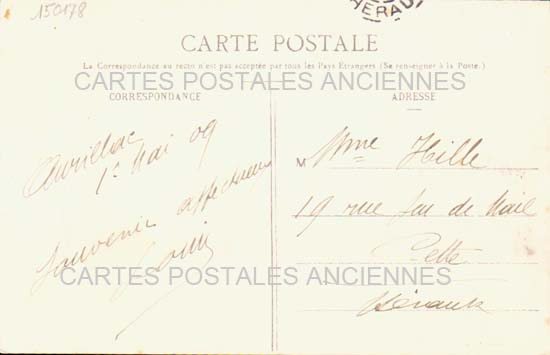 150178
HERAU
CARTE POSTALE
La Correspondance au recto n'est pas acceptée par tous les Pays Etrangers (Se renseigner à la Poste.)
CARTES POSTALES ANCIENNES
CORRESPONDANCE
ADRESSE
Aurillac
1er Mai 09
Souvenir affectueux
M Mme Hille
19 rue de Mail
Cette
Hérault
CARTES POSTALES ANCIENNES